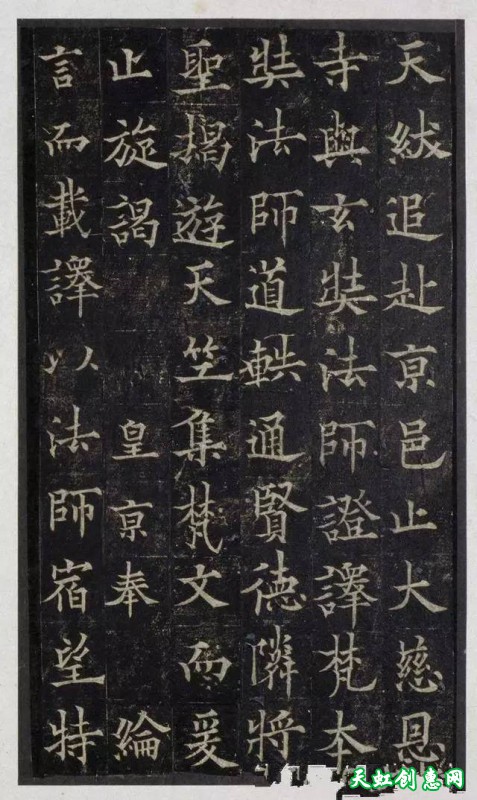 天紱追赴亰邑止大慈恩
寺與玄奘法師證譯梵本
奘法師道軼通賢德隣將
聖揭遊天竺集梵文而爰
止旋謁 皇亰奉 綸
言而載譯以法師宿望特
天虹创惠网